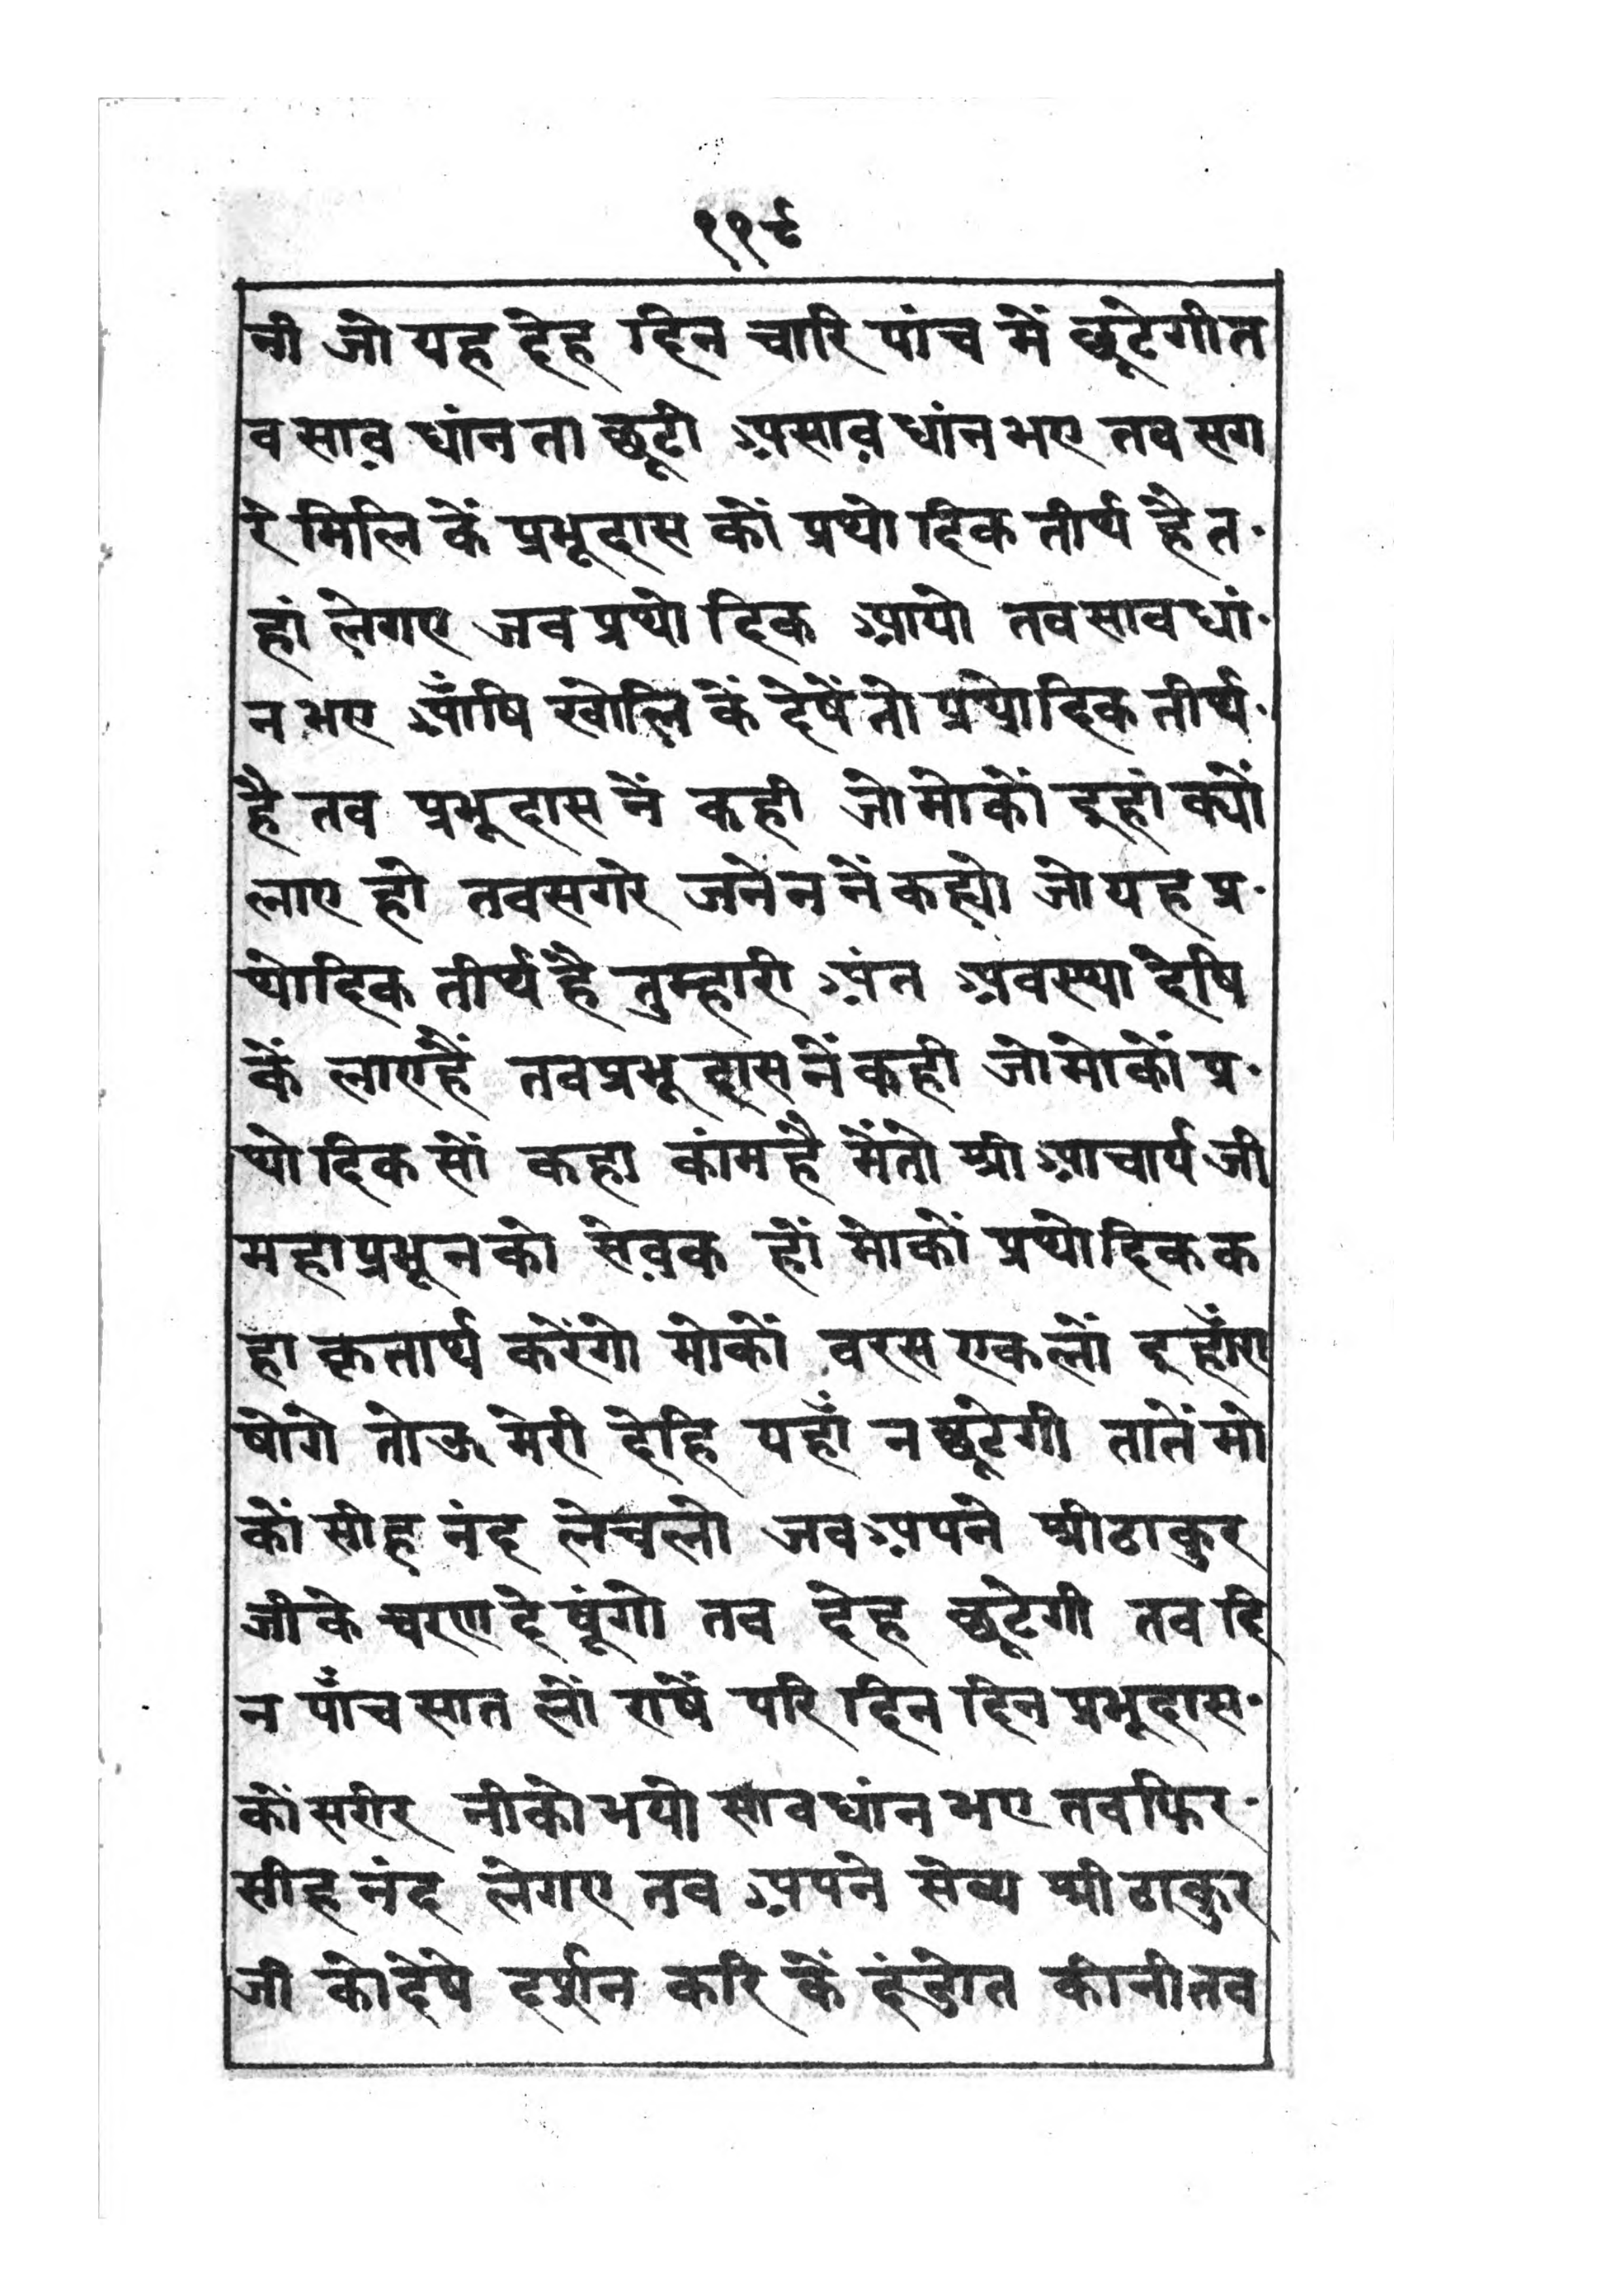 ११८
नी जो यह देह दिन चारि पांच में छूटेगी त
व साव़ धांन ता छूटी असाव़ धांन भए तव सग
रे मिलि कें प्रभूदास कों प्रथोदिक तीर्थ है त
हां लेगए जव प्रथोदिक आयो तव सावधां
न भए आँषि खोलि कें देषें तो प्रथोदिक तीर्थ
है तव प्रभूदास नें कही जो मोकों इहां क्यों
लाए हो तव सगरे जनेन नें कह्यो जो यह प्र
थोदिक तीर्थ है तुम्हारी अंत अवस्था देषि
कें लाएहैं तव प्रभूदास नें कही जो मोकों प्र
थोदिक सों कहा कांमहै मेंतो श्री आचार्य जी
महाप्रभून को सेव़क हों मोकों प्रथोदिक क
हा कृतार्थ करेंगो मोकों वरस एकलों इहाँरा
षोगे तोऊ मेरी देहि यहाँ न छूटेगी तातें मो
कों सीहनंद लेचलो जव अपने श्रीठाकुर
जी के चरण देषूंगो तव देह छूटेगी तव दि
न पाँच सात लों राषें परि दिन दिन प्रभूदास
कों सरीर नीको भयो सावधांन भए तवफिर
सीहनंद लेगए तव अपने सेव्य श्रीठाकुर
जी कोदेषे दर्शन करि कें दंडोत कीनी तव